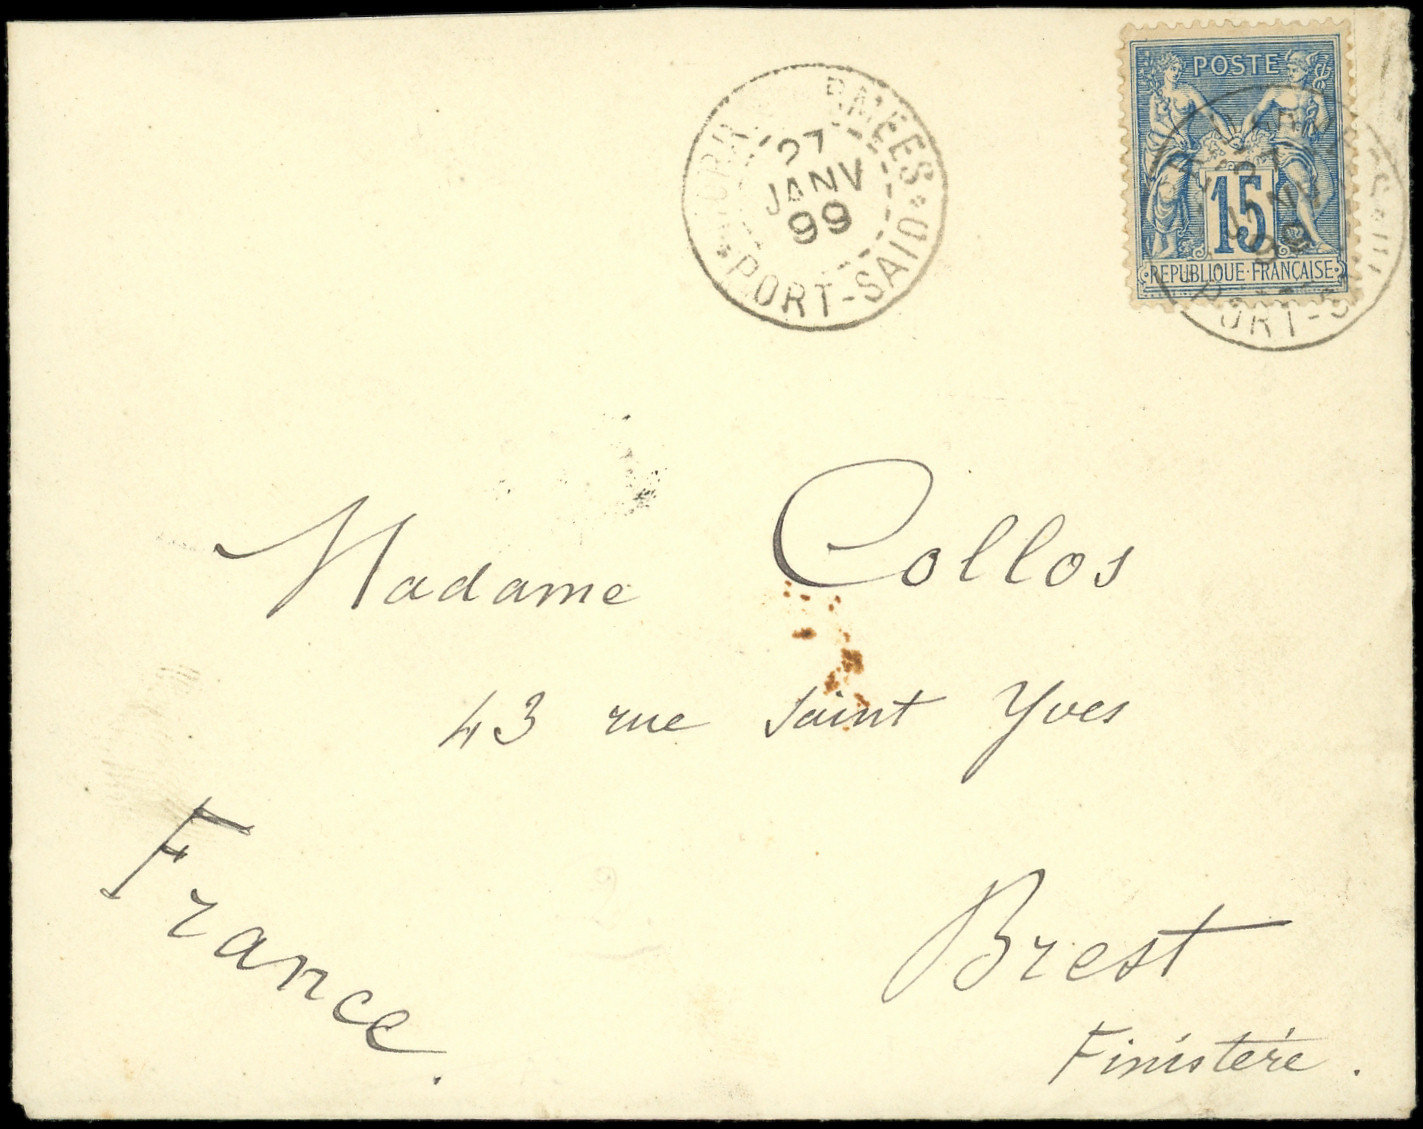 POSTE
15
REPUBLIQUE FRANÇAISE
27
JANV
99
PORT-SAID
Madame Collos
43 rue Saint Yves
France.
Brest
Finistère.